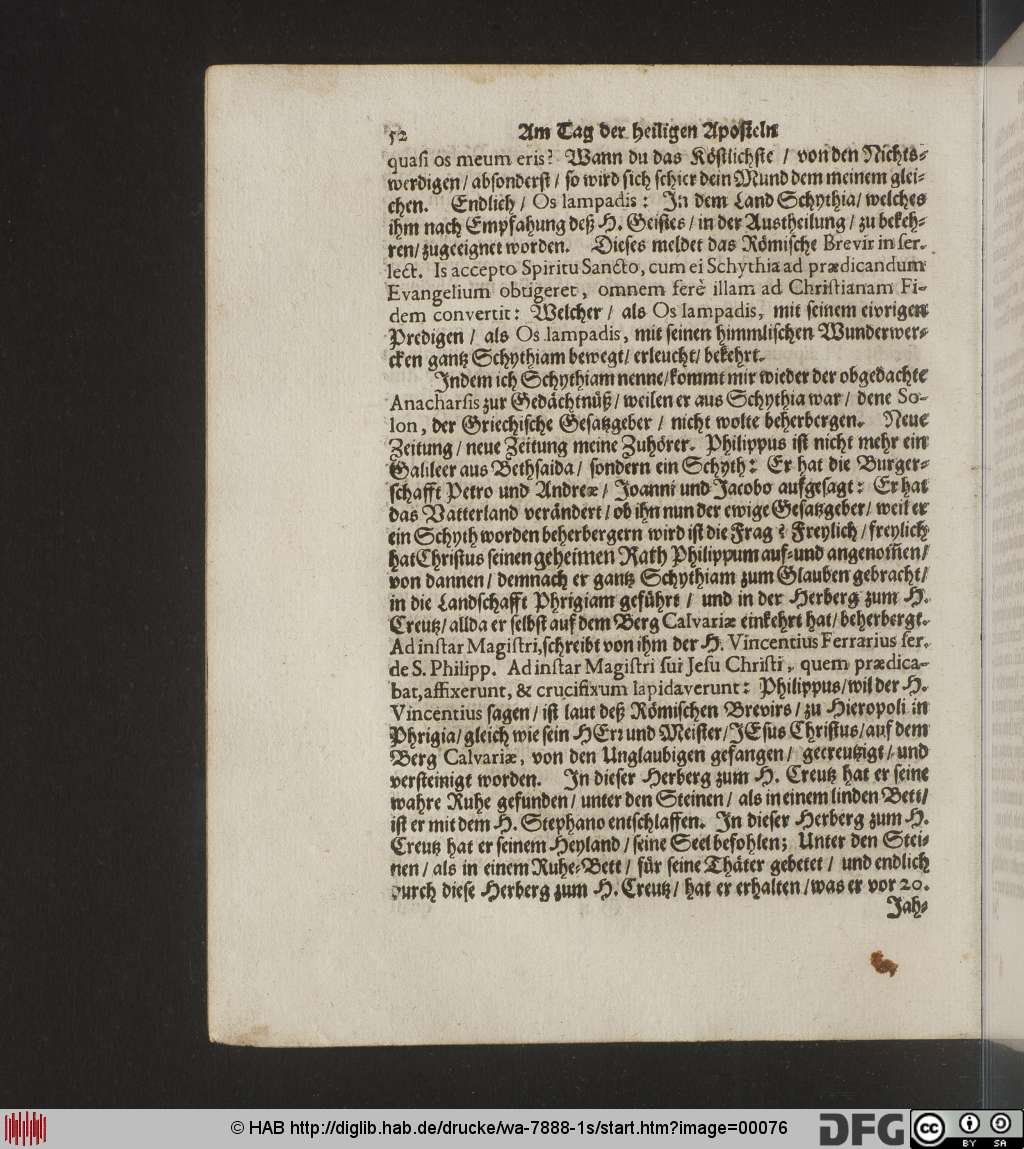 52 Am Tag der heiligen Aposteln
quasi os meum eris? Wann du das Köstlichste / von den Nichts-
werdigen / absonderst / so wird sich schier dein Mund dem meinem glei-
chen. Endlich / Os lampadis: In dem Land Schythia / welches
ihm nach Empfahung deß H. Geistes / in der Austheilung / zu bekeh-
ren / zugeeignet worden. Dieses meldet das Römische Brevir in ser.
lect. Is accepto Spiritu Sancto, cum ei Schythia ad prædicandum
Evangelium obtigeret, omnem ferè illam ad Christianam Fi-
dem convertit: Welcher / als Os lampadis, mit seinem eivrigen
Predigen / als Os lampadis, mit seinen himmlischen Wunderwer-
cken gantz Schythiam bewegt / erleucht / bekehrt.
Indem ich Schythiam nenne / kommt mir wieder der obgedachte
Anacharsis zur Gedächtnüß / weilen er aus Schythia war / dene So-
lon, der Griechische Gesatzgeber / nicht wolte beherbergen. Neue
Zeitung / neue Zeitung meine Zuhörer. Philippus ist nicht mehr ein
Galileer aus Bethsaida / sondern ein Schyth: Er hat die Burger-
schafft Petro und Andreæ / Joanni und Jacobo aufgesagt: Er hat
das Vatterland verändert / ob ihn nun der ewige Gesatzgeber / weil er
ein Schyth worden beherbergern wird ist die Frag? Freylich / freylich
hat Christus seinen geheimen Rath Philippum auf- und angenom̃en /
von dannen / demnach er gantz Schythiam zum Glauben gebracht /
in die Landschafft Phrigiam geführt / und in der Herberg zum H.
Creutz / allda er selbst auf dem Berg Calvariæ einkehrt hat / beherbergt.
Ad instar Magistri, schreibt von ihm der H. Vincentius Ferrarius ser.
de S. Philipp. Ad instar Magistri sui Jesu Christi, quem prædica-
bat, affixerunt, & crucifixum lapidaverunt: Philippus / wil der H.
Vincentius sagen / ist laut deß Römischen Brevirs / zu Hieropoli in
Phrigia / gleich wie sein HErr und Meister / JEsus Christus / auf dem
Berg Calvariæ, von den Unglaubigen gefangen / gecreutzigt / und
versteinigt worden. In dieser Herberg zum H. Creutz hat er seine
wahre Ruhe gefunden / unter den Steinen / als in einem linden Bett /
ist er mit dem H. Stephano entschlaffen. In dieser Herberg zum H.
Creutz hat er seinem Heyland / seine Seel befohlen; Unter den Stei-
nen / als in einem Ruhe-Bett / für seine Thäter gebetet / und endlich
durch diese Herberg zum H. Creutz / hat er erhalten / was er vor 20.
Jah-
© HAB http://diglib.hab.de/drucke/wa-7888-1s/start.htm?image=00076
DFG
cc BY SA